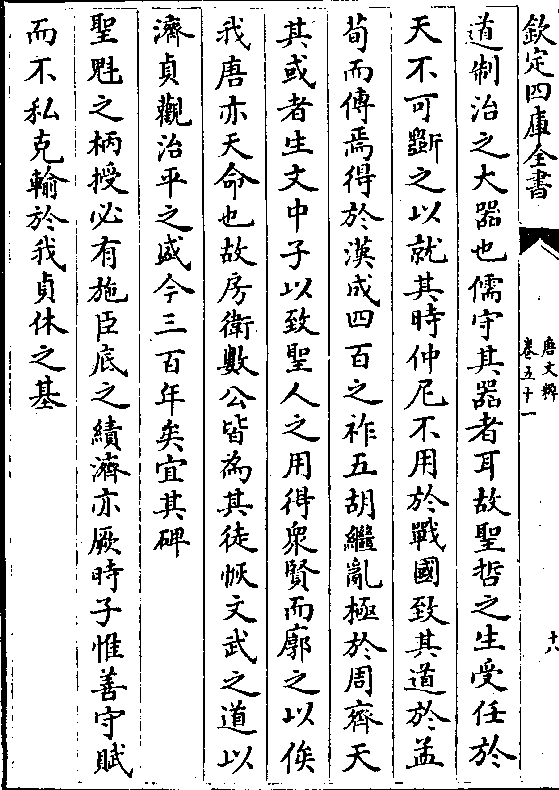 欽定四庫全書
唐文粹
卷五十一
十六
道制治之大器也儒守其器者耳故聖哲之生受任於
天不可斵之以就其時仲尼不用於戰國致其道於孟
荀而傳焉得於漢成四百之祚五胡繼亂極於周齊天
其或者生文中子以致聖人之用得衆賢而廓之以俟
我唐亦天命也故房衛數公皆為其徒恢文武之道以
濟貞觀治平之盛今三百年矣宜其碑
聖魁之柄授必有施臣底之績濟亦厥時子惟善守賦
而不私克輸於我貞休之基